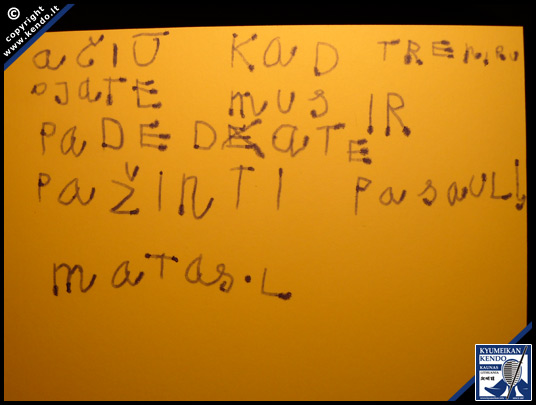 © copyright
www.kendo.lt
AČIŪ KAD TRENIRU
OJATE MUS IR
PADEDATE
PAŽINTI PASAULĮ
MATAS.L
KYUMEIKAN
KENDO
KAUNAS
LITHUANIA